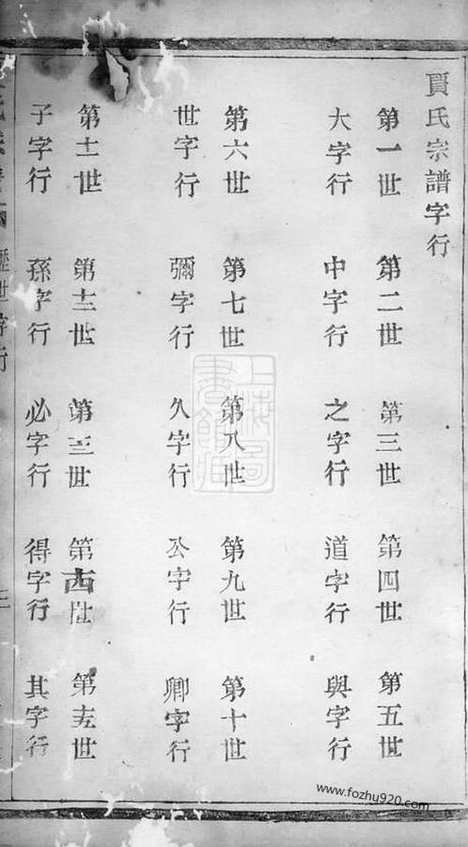 賈氏宗譜字行
第一世 第二世 第三世 第四世 第五世
大字行 中字行 之字行 道字行 與字行
第六世 第七世 第八世 第九世 第十世
世字行 彌字行 久字行 公字行 卿字行
第十一世 第十二世 第十三世 第十四世 第十五世
子字行 孫字行 必字行 得字行 其字行
歷世字行
上海圖書館藏
www.fozhy920.com